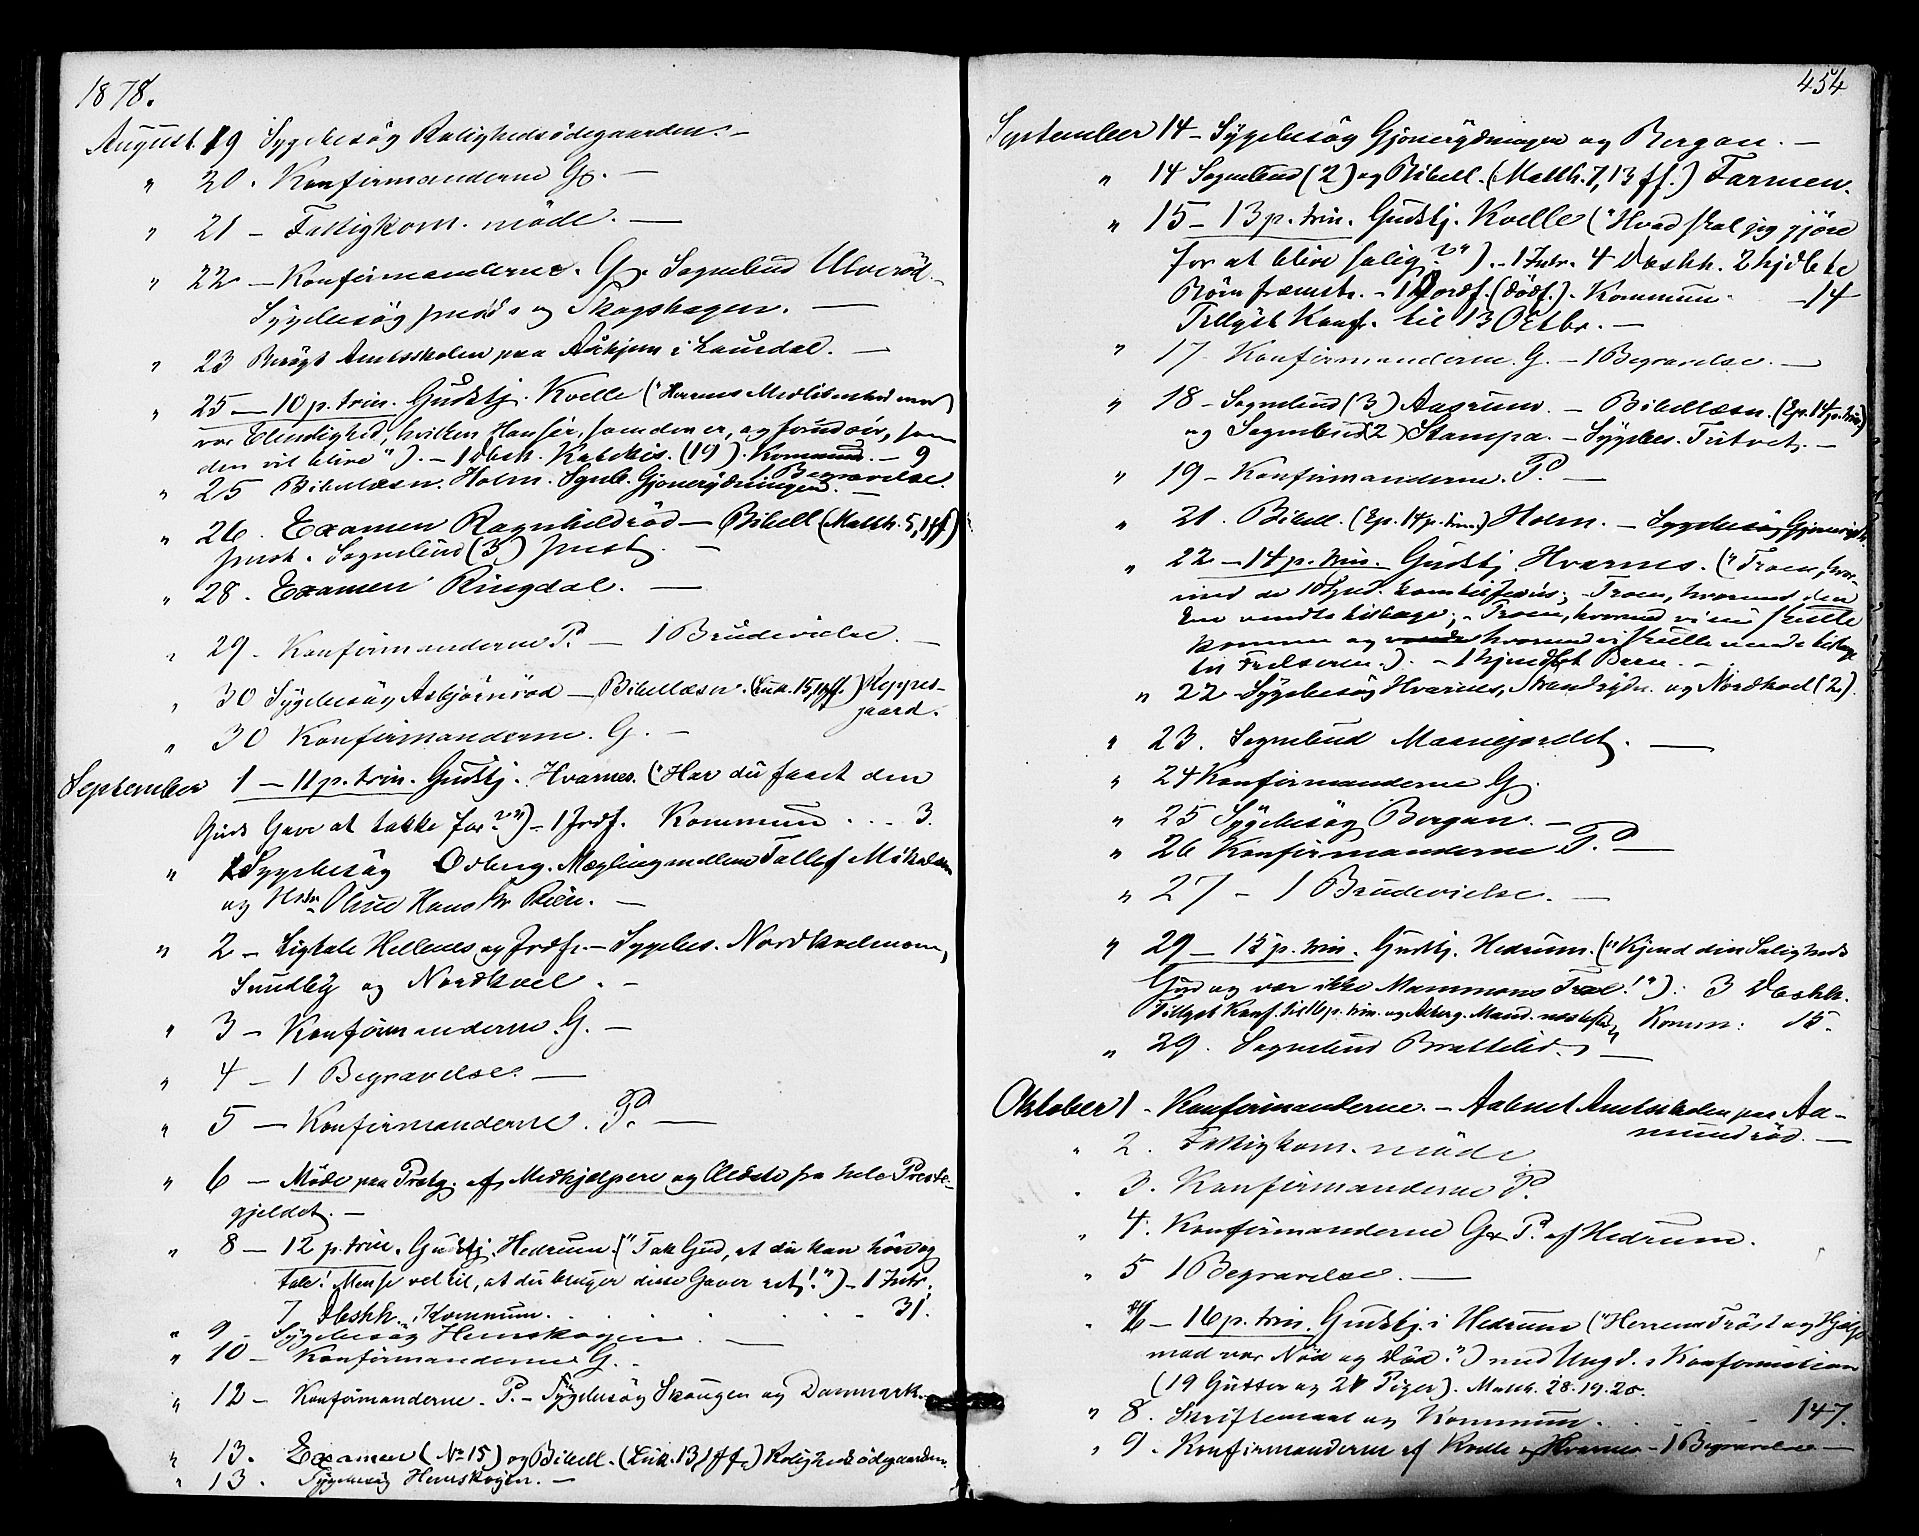 1878.
August 19 Sygebesøg Rolighedsødegaarden. –
" 20. Konfirmanderne G. –
" 21 – Fattigkom. møde. –
" 22 – Konfirmanderne. G. Sognebud Ulverød –
Sygebesøg og Skogshagen. –
" 23 Besøgt Amtsskolen paa i Laurdal. –
" 25 – 10 p. trin. Gudstj. Kvelle ("Herrens Medlidenhed med
vor Elendighed, hvilken Han ser, som den er, og forudser, som
den vil blive"). – 1 Daabsh. Katekis. (19). Kommun. – 9
" 25 Bibellæsn. Holm. Sgnb. Gjonerydningen. 1 Begravelse.
" 26. Examen Ragnhildrød – Bibell (Matth. 5, 1 ff)
Sognebud (3) –
" 28. Examen Ringdal. –
" 29 – Konfirmanderne P. – 1 Brudevielse. –
" 30 Sygebesøg Asbjørnrød – Bibellæsn. (Luk. 15, 11 ff.) Heppes-
gaard.
" 30 Konfirmanderne. G. –
September 1 – 11 p. trin. Gudstj. Hvarnes. ("Har du faaet den
Guds Gave at takke for?") – 1 Jrdf. Kommun . . . 3.
" 1 Sygebesøg Odberg. Mægling mellem Tallef Mikalsen
og Hstr. Oline Hans Kr. –
" 2 – Ligtale Hellenes og Jrdf. – Sygebes. Nordkvelmoen,
Sundby og Nordkvel. –
" 3 – Konfirmanderne. G. –
" 4 – 1 Begravelse. –
" 5 – Konfirmanderne. P. –
" 6 – Møde paa Prstg. af Medhjelpere og Ældste fra hele Præste-
gjeldet. –
" 8 – 12 p. trin. Gudstj. Hedrum. ("Tak Gud, at du kan høre og
tale! Men se vel til, at du bruger disse Gaver ret!") – 1 Intr.
7 Dbshh. Kommun. . . . . 31.
" 9 – Sygebesøg Hemskogen –
" 10 – Konfirmanderne G. –
" 12 – Konfirmanderne. P. – Sygebesøg Skougen og Danmark.
" 13. Examen (No 15) og Bibell. (Luk. 13, 1 ff.) Rolighedsødegaarden.
" 13. Sygebesøg Hemskogen. –
454
September 14 – Sygebesøg Gjonerydningen og Bergan. –
" 14 Sognebud (2) og Bibell. (Matth. 7, 13 ff.) Farmen.
" 15 – 13 p. trin. Gudstj. Kvelle ("Hvad skal jeg gjøre
for at blive salig?"). – 1 Intr. 4 Daabh. 2 hjdbte
Børn fræmst. – 1 Jordf. (dødf.). Kommun. – 14
Tillyst Konf. til 13 Octbr. –
" 17. Konfirmanderne. G. – 1 Begravelse. –
" 18 – Sognebud (3) Aasrum. – Bibellæsn. (Ep. 14 p. trin)
og Sognebud (2) Stampa. – Sygebes. Tutvet. –
" 19 – Konfirmanderne. P. –
" 21. Bibell. (Ep. 14 p. trin.) Holm. – Sygebesøg Gjonerydn.
" 22 – 14 p. trin. Gudstj. Hvarnes. ("Troen, hvor-
med de 10 Spd. kom til Jesus; – Troen, hvormed den
Ene vendte tilbage; – Troen, hvormed vi nu skulle
komme og hvormed vi skulle vende tilbage
til Frelseren.). – 1 hjmdbt Barn. –
" 22 Sygebesøg Hvarnes, Strandrydn. og Nordkvel (2).
" 23. Sognebud Maanejordet. –
" 24 Konfirmanderne G.
" 25 Sygebesøg Bergan. –
" 26 Konfirmanderne P. –
" 27 – 1 Brudevielse. –
" 29 – 15 p. trin. Gudstj. Hedrum. ("Kjend din Saligheds
Gud og vær ikke Mammons Træl!"). 3 Dbshh.
Tillyst Konf. til 16 p. trin. og Komm: 15.
" 29. Sognebud Brattelid. –
Oktober 1. Konfirmanderne. – Aabnet Amtsskolen paa Aa-
mundrød. –
" 2. Fattigkom. møde.
" 3. Konfirmanderne P.
" 4. Konfirmanderne G & P. af Hedrum.
" 5 1 Begravelse. –
" 6 – 16 p. trin. Gudstj. i Hedrum ("Herrens Trøst og Hjælp
mod vor Nød og Død.") med Ungd.s Konfirmation
(19 Gutter og 21 Piger). Matth. 28. 19. 20.
" 8. Skriftemaal og Kommun. . . . 147.
" 9. Konfirmanderne af Kvelle og Hvarnes – 1 Begravelse –